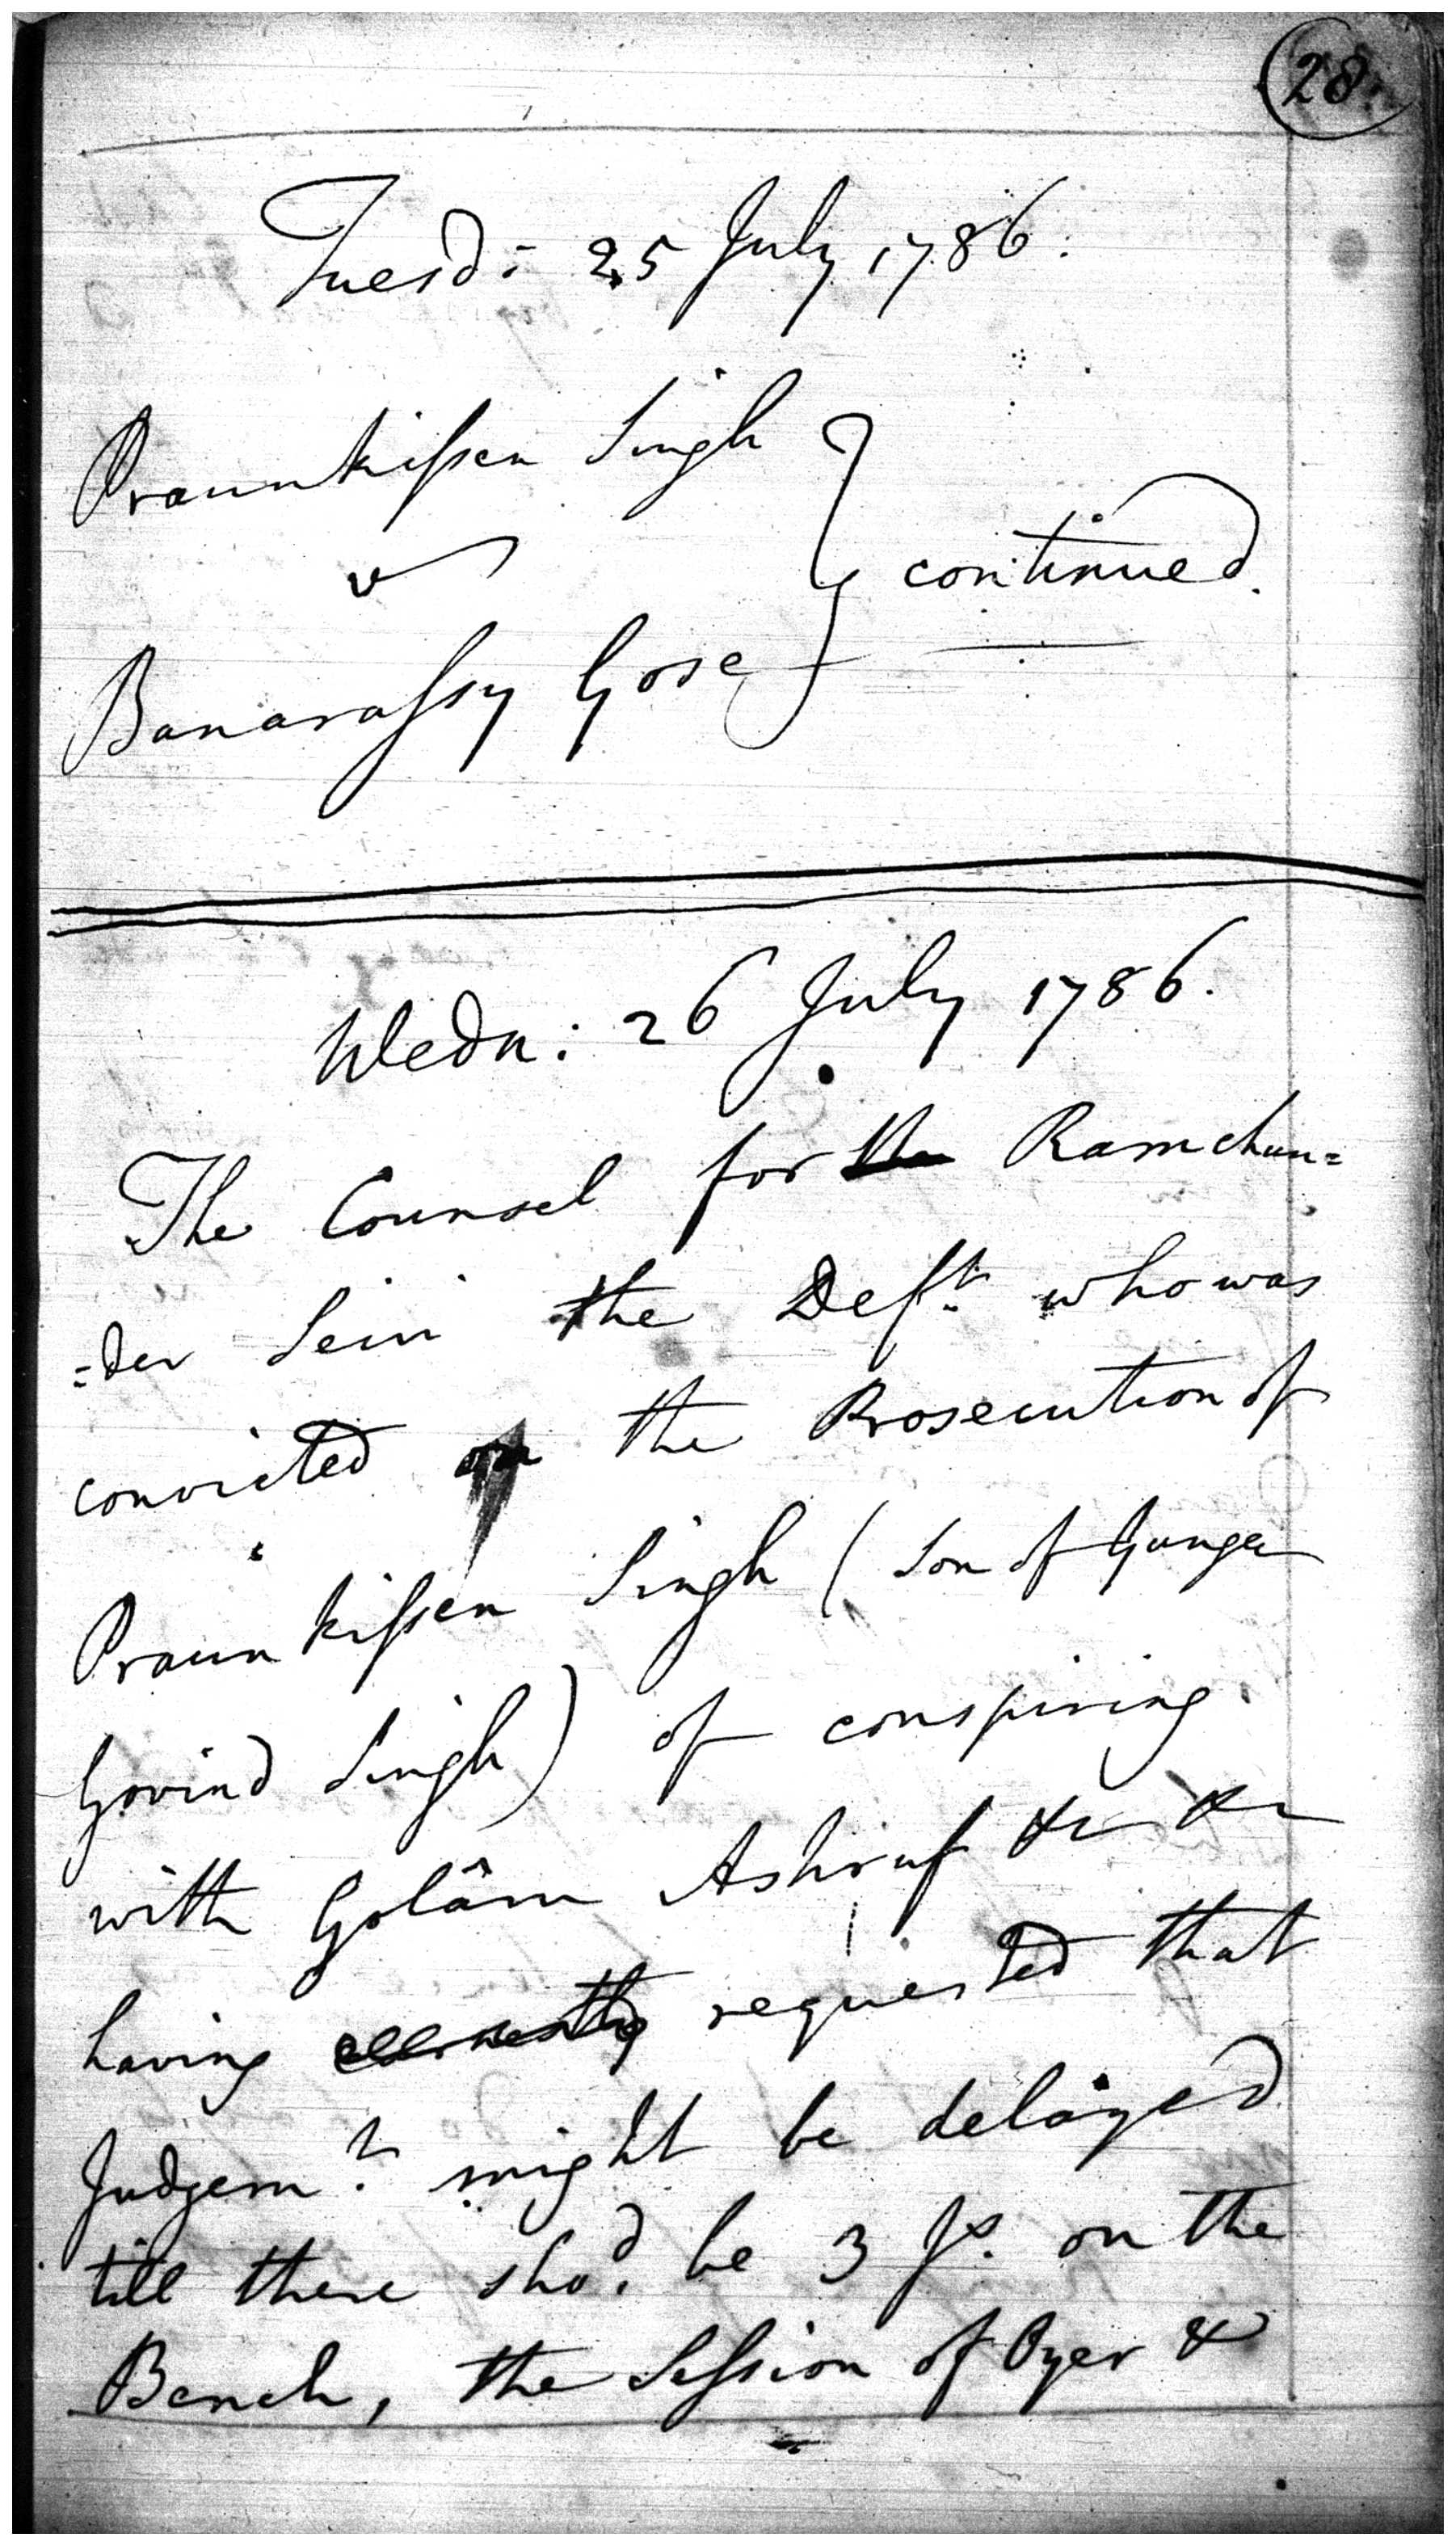 28
Tuesd: 25 July 1786.
Praunkissen Singh
v
continued.
Banarassy Gose
Wedn: 26 July 1786.
The Counsel for the Ramchun=
=der Sein the Deft. who was
convicted on the Prosecution of
Praunkissen Singh (Son of Gunga
Govind Singh) of conspiring
with Golâm Ashruf &c &c
having requested that
Judgemt. might be delayed
till there shod. be 3 Js. on the
Bench, the Session of Oyer &